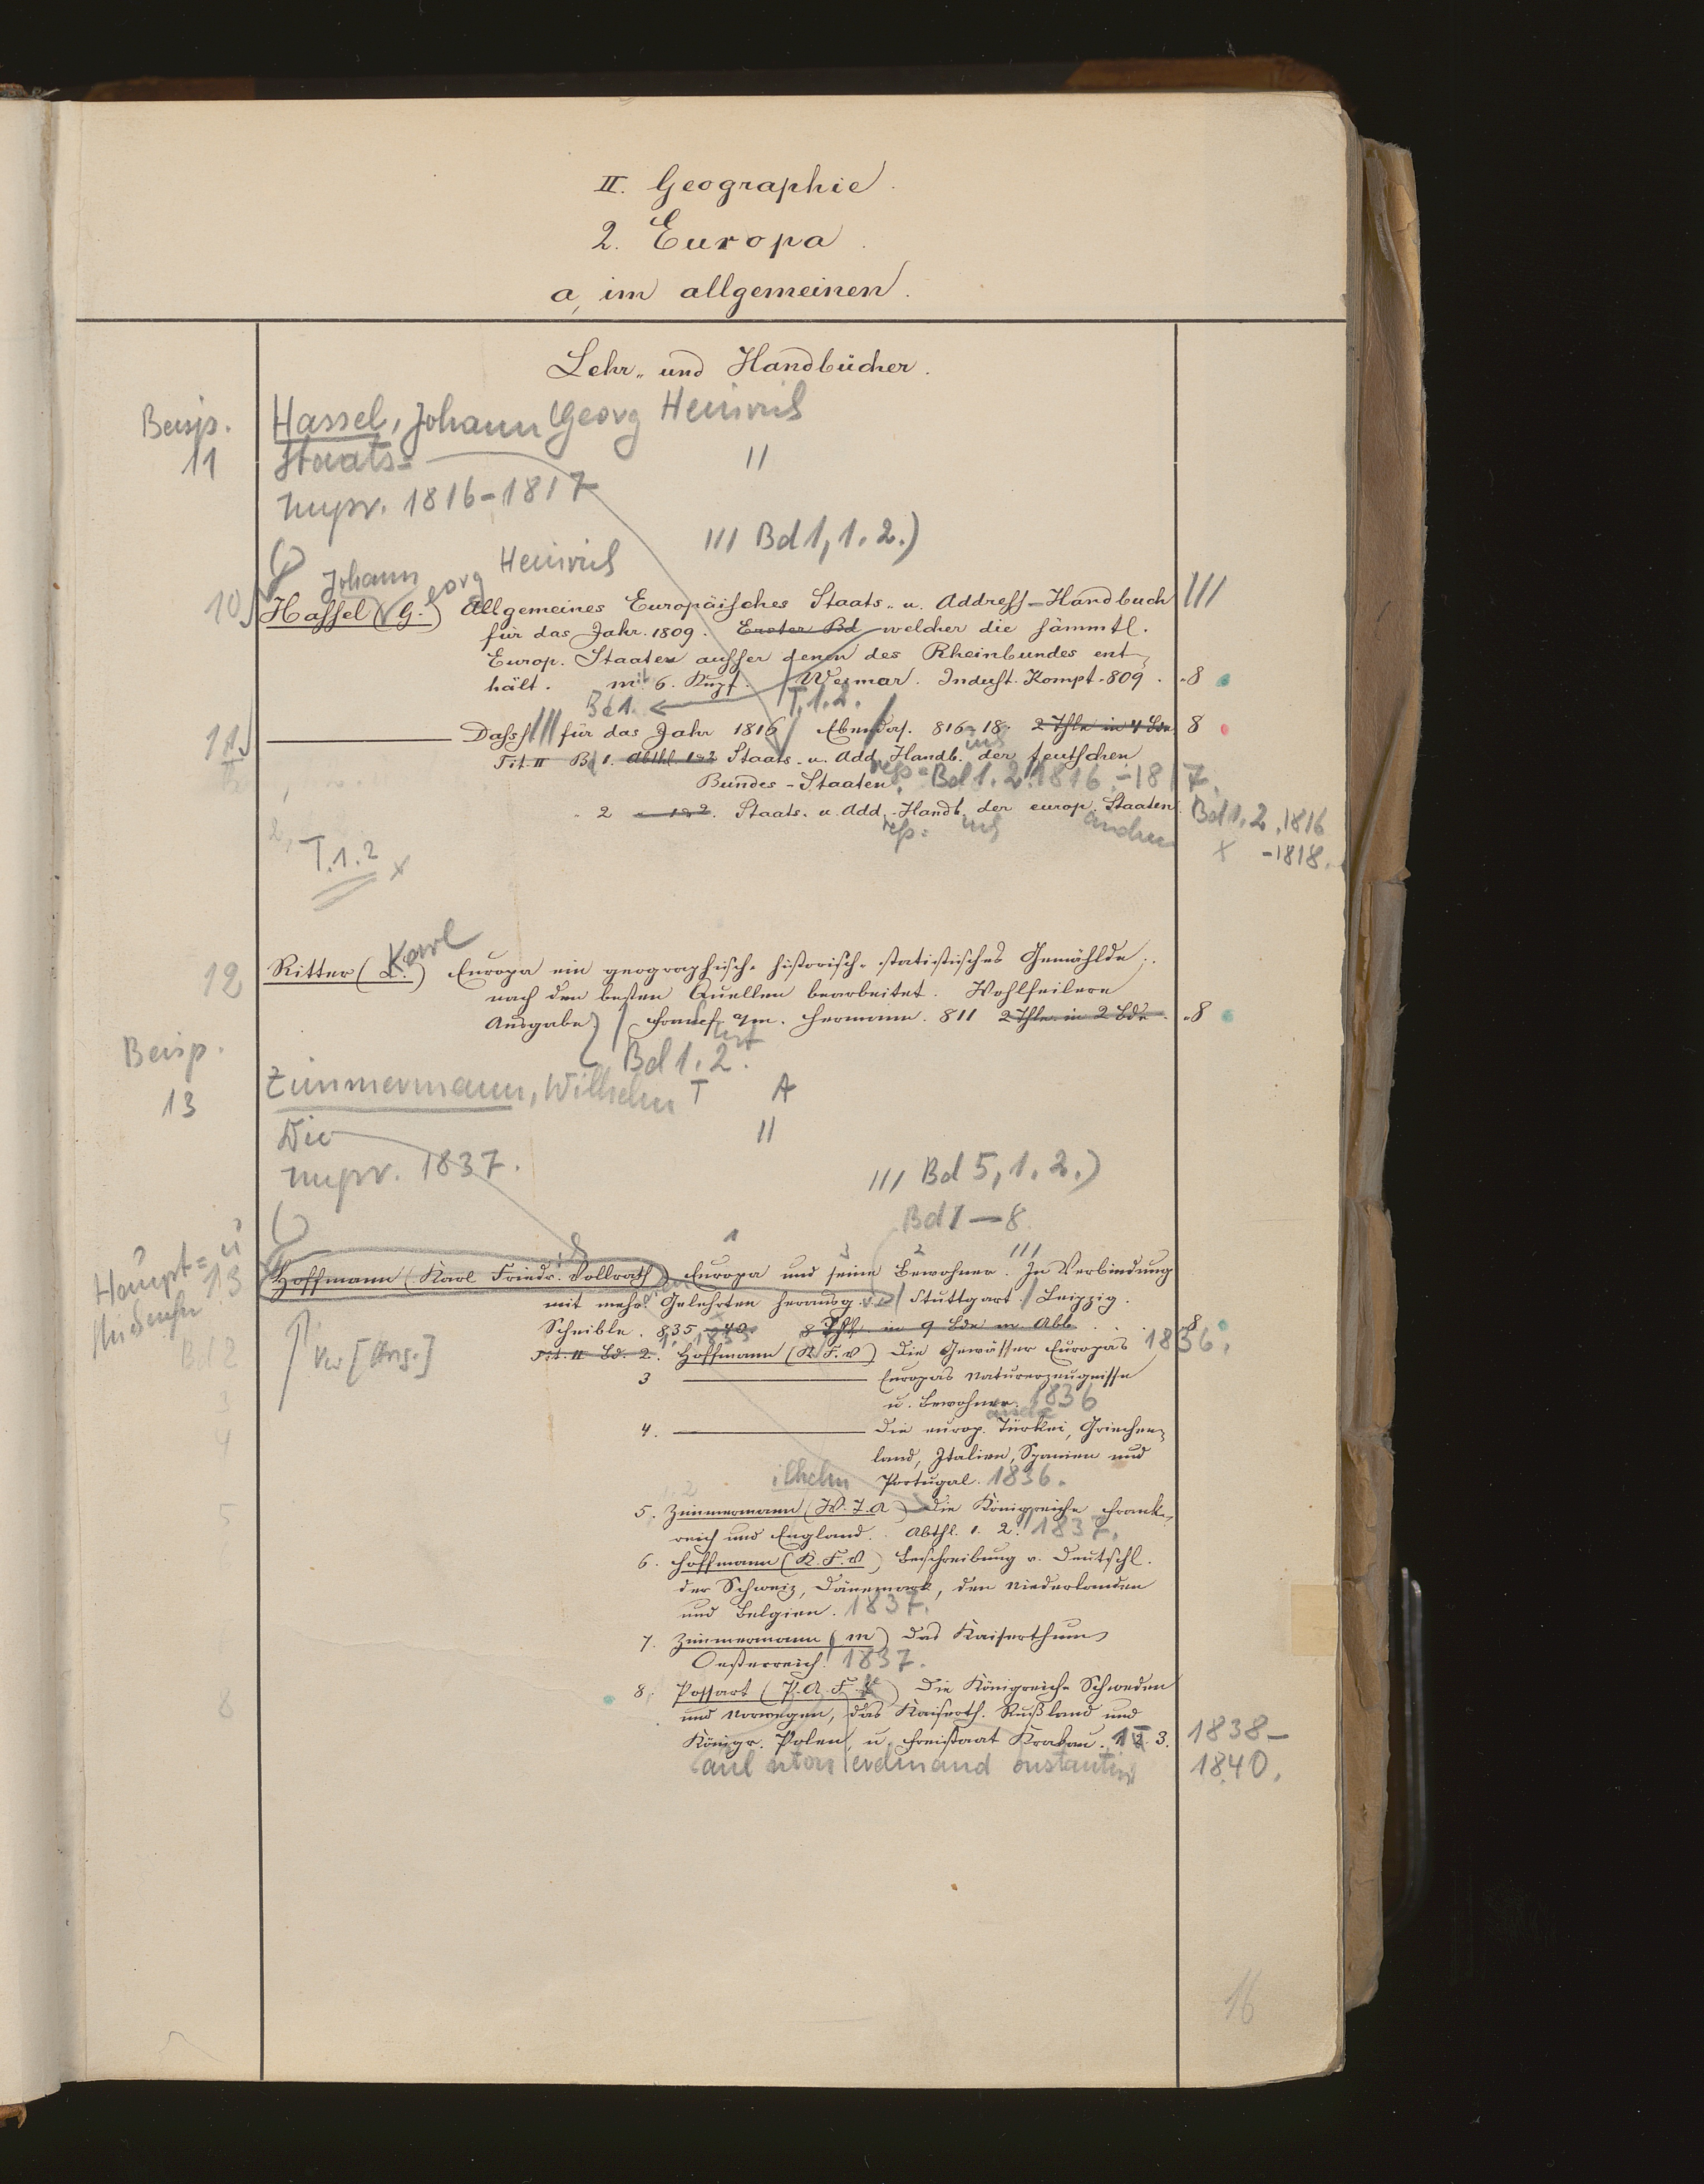 II. Geographie.
2. Europa.
a, im allgemeinen.
Lehr- und Handbücher.
Beisp.
11
Hassel, Johann Georg Heinrich
Staats=
Impr. 1816-1817
II
III Bd 1, 1. 2.)
Johann eorg Heinrich
10
Hassel (G.) Allgemeines Europäisches Staats- u. Address-Handbuch III
für das Jahr 1809. Erster Bd welcher die sämmtl.
Europ. Staaten ausser denen des Rheinbundes ent-
hält. mit 6. Kupf. Weimar. Indust. Kompt. 809. 8
Bd 1. T. 1. 2.
11
Dass. III für das Jahr 1816 Ebendas. 816-18. 2 Thle in 4 Bde 8
Tit. II Bd 1. Abthl. 1 2 Staats- u. Add. Handb. der teutschen
Bundes-Staaten. Bd 1. 2. 1816.-1817.
2 1 2. Staats- u. Add.-Handb. der europ. Staaten.
andern
Bd 1. 2. 1816
x -1818.
T. 1. 2 x
12
Karl
Ritter ( ) Europa ein geographisch-historisch-statistisches Gemählde.
nach den besten Quellen bearbeitet. Wohlfeilere
Ausgabe. Frankf. a/m. Hermann. 811 2 Thle. in 2 Bde. 8
Bd 1. 2.
Beisp.
13
Zimmermann, Wilhelm T A
Die II
impr. 1837.
III Bd 5, 1. 2.)
Bd 1-8.
Haupt= u
13
Hoffmann (Karl Friedr. Vollrath) Europa und seine Bewohner. In Verbindung
mit mehr. Gelehrten herausg. v. Stuttgart. Leipzig.
Scheible. 835-40. 8 Thl. in 9 Bde m. Abb. 8
Bd 2
Tit. II Bd. 2. Hoffmann (K. F. V) Die Gewässer Europas 1836.
Ver [Ang.]
3
3 Europas Naturerzeugnisse
u. Bewohner. 1836
4
4. Die europ. Türkei, Griechen-
land, Italien, Spanien und
Portugal. 1836.
ilhelm
5
5. Zimmermann (W. T. A) Die Königreiche Frank-
reich und England. Abthl. 1. 2. 1837.
6. Hoffmann (K. F. V) Beschreibung v. Deutschl.
der Schweiz, Dänemark, den Niederlanden
und Belgien. 1837.
7. Zimmermann (m) Das Kaiserthum
Oesterreich. 1837.
8
8. Possart (P. A. F. K) Die Königreiche Schweden
und Norwegen, das Kaiserth. Rußland und
Königr. Polen, u. Freistaat Krakau. 1 2. 3. 1838-
aul nton erdinand onstantin 1840.
16